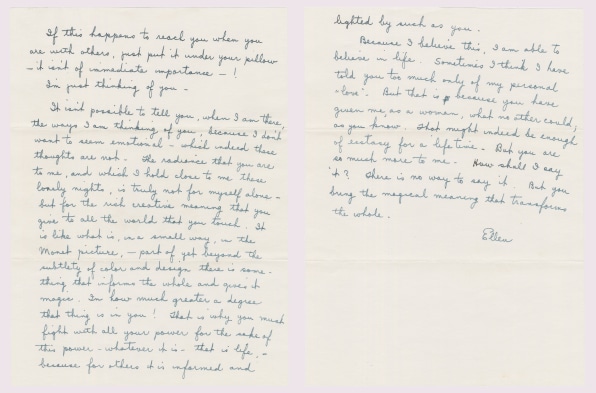 If this happens to reach you when you
are with others, just put it under your pillow
- it isn't of immediate importance - !
I'm just thinking of you -
It isn't possible to tell you, when I am there,
the ways I am thinking of you, because I don't
want to seem emotional - which indeed those
thoughts are not. The radiance that you are
to me, and which I hold close to me these
lonely nights, is truly not for myself alone -
but for the rich creative meaning that you
give to all the world that you touch. It
is like what is, in a small way, in the
Monet picture, - part of, yet beyond the
subtlety of color and design there is some-
thing that informs the whole and gives it
magic. In how much greater a degree
that thing is in you! That is why you must
fight with all your power for the sake of
this power - whatever it is - that is life, -
because for others it is informed and
lighted by such as you.
Because I believe this, I am able to
believe in life. Sometimes I think I have
told you too much only of my personal
"love". But that is because you have
given me, as a woman, what no other could,
as you know. That might indeed be enough
of ecstasy for a lifetime. But you are
so much more to me. How shall I say
it? There is no way to say it. But you
bring the magical meaning that transforms
the whole.
Ellen